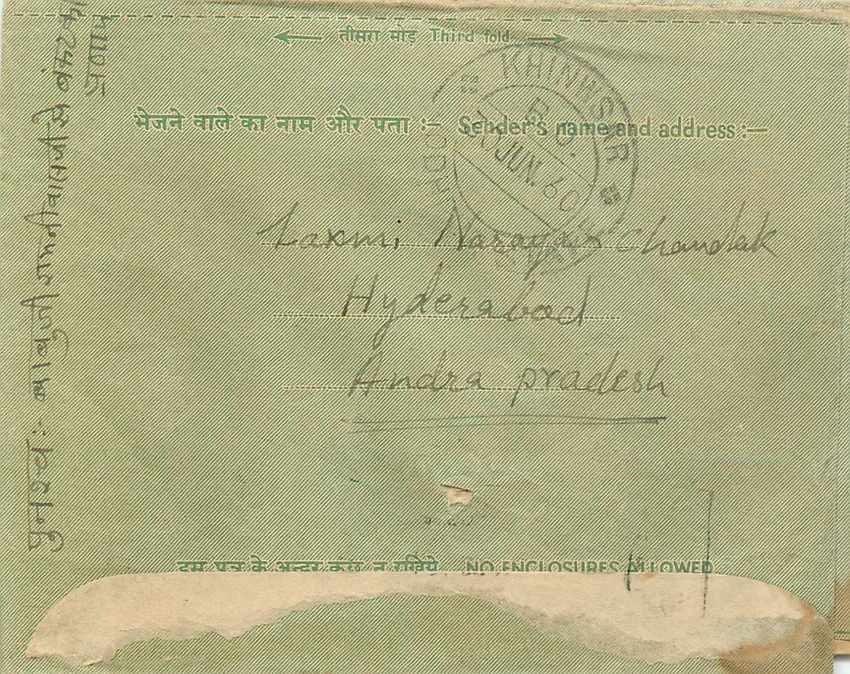 तीसरा मोड़ Third fold
KHINWSAR
JUN. 60
भेजने वाले का नाम और पता :- Sender's name and address :-
Laxmi Narayan Chandak
Hyderabad
Andra pradesh
इस पत्र के अन्दर कुछ न रखिये NO ENCLOSURES ALLOWED
पुनश्च :- बाबुजी रामनीवासजी से बंकट का
प्रणाम